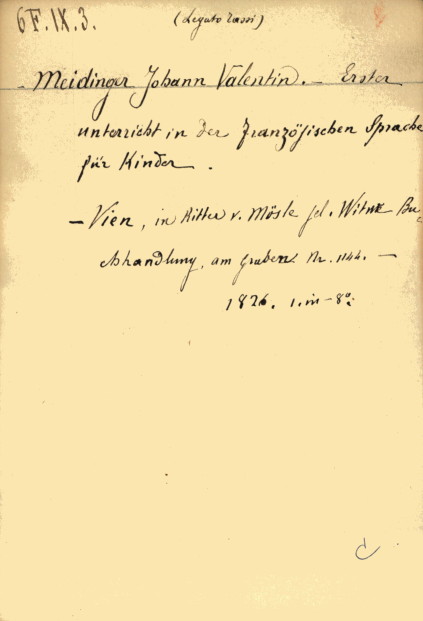 6 F. IX. 3.
(Legato Tassi)
Meidinger Johann Valentin. — Erster
unterricht in der Französischen Sprache
für Kinder.
— Vien, in Ritter v. Mösle sel. Witwe Bu-
chhandlung, am Graben. Nr. 1144. —
1826. 1. in - 8º:
C